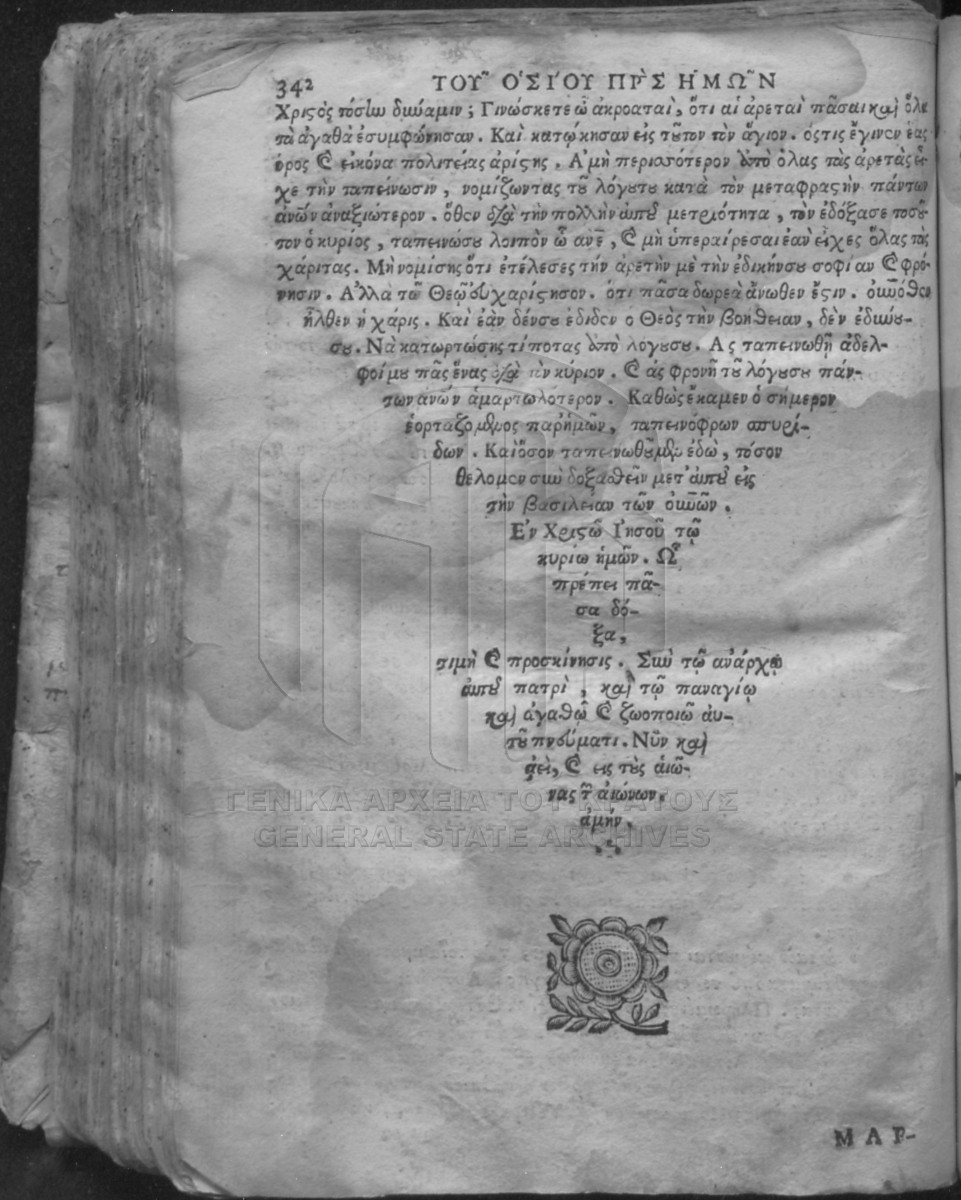 342 ΤΟΥ͂ ὉΣΊΟΥ ΠΡ̀Σ ἩΜΩ͂Ν
Χριϛὸς τόσlω δμύαμιν; Γινώσκετε ὦ ἀκροαταὶ, ὅτι αἱ ἀρεταὶ πᾶσαι καὶ ὅλα
τὰ ἀγαθὰ ἐσυμφώνησαν. Καὶ κατῴκησαν εἰς τȣ͂τον τὸν ἅγιον. ὅςτις ἔγινεν ἕας
ὅρος ϗ εἰκόνα πολιτείας ἀρίϛης. Αμὴ περισσότερον ἀπὸ ὅλας τὰς ἀρετὰς εἶ-
χε τὴν ταπείνωσιν, νομίζωντας τȣ͂ λόγȣτȣ κατὰ τὸν μεταφραϛὴν πάντων
ἀνῶν ἀναξιώτερον. ὅθεν διὰ τὴν πολλὴν αὐτȣ͂ μετριότητα, τὸν ἐδόξασε τοσȣ͂
τον ὁ κυρίος, ταπεινώσȣ λοιπὸν ὦ ἀνε, ϗ μὴ ὑπεραίρεσαι ἐὰν εἶχες ὅλας τὰς
χάριτας. Μὴ νομίσῃς ὅτι ἐτέλεσες τὴν ἀρετὴν μὲ τὴν ἐδικήνσȣ σοφίαν ϗ φρό-
νησιν. Αλλὰ τῷ Θεῷ εὐχαρίϛησον. ὁτι πᾶσα δωρεὰ ἄνωθεν ἔϛιν. οὐνόθεν
ἦλθεν ἡ χάρις. Καὶ ἐὰν δένσȣ ἔδιδεν ο Θεὸς τὴν βοήθειαν, δὲν ἐδιωύ-
σȣ. Νὰ κατωρτώσῃς τίποτας ἀπὸ λόγȣσȣ. Ας ταπεινωθῇ ἀδελ-
φοί μȣ πᾶς ἕνας διὰ τὸν κύριον. ϗ ἀς φρονῇ τȣ͂ λόγȣσȣ πάν-
των ἀνῶν ἁμαρτωλότερον. Καθὼς ἔκαμεν ὁ σήμερον
ἑορταζόμενος παρἡμῶν, ταπεινόφρων σπυρί-
δων. Καὶ ὅσον ταπεινωθȣ͂μεν ἐδὼ, τόσον
θέλομεν σιὼ δοξασθεῖν μετ' αὐτȣ͂ εἰς
τὴν βασιλείαν τῶν οὐνῶν.
Ἐν Χριϛῷ Ἰησοῦ τῷ
κυρίῳ ἡμῶν. Ὧ
πρέπει πᾶ-
σα δό-
ξα,
τιμὴ ϗ προσκίνησις. Σιὼ τῷ ἀνάρχῳ
αὐτȣ͂ πατρὶ, καὶ τῷ παναγίῳ
καὶ ἀγαθῷ ϗ ζωοποιῷ ἀυ-
τȣ͂ πνεύματι. Νῦν καὶ
ἀεὶ, ϗ εις τȣ̀ς ἀιῶ-
νας τ̃ αἰώνων.
ἀμήν.
ΓΕΝΙΚΑ ΑΡΧΕΙΑ ΤΟΥ ΚΡΑΤΟΥΣ
GENERAL STATE ARCHIVES
ΜΑΡ-